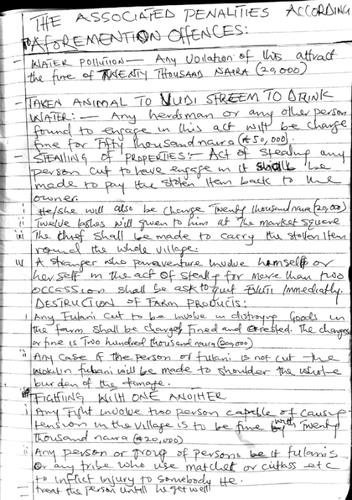 THE ASSOCIATED PENALITIES ACCORDING
AFOREMENTION OFFENCES:
- WATER POLLUTION - Any Voilation of this attract
the fine of TWENTY THOUSAND NAIRA (20,000)
- TAKEN ANIMAL TO VUDI STREEM TO DRINK
WATER: - Any herdsman or any other person
found to engage in this act will be charge
fine for Fifty thousand naira (₦50,000).
- STEALING OF PROPERTIES:- Act of stealing any
person cut to have engage in it shall be
made to pay the stolen item back to the
owner.
i He/she will also be charge Twenty thousand naira (20,000)
ii Twelve lashes will given to him at The market square
iii The thief shall be made to carry the stolen item
round the whole village.
iv A stranger who paraventure involve himself or
herself in the act of stealing for more than two
occession shall be ask to quit immediately.
DESTRUCTION OF FARM PRODUCTS:
i Any Fulani cut to be involve in distroying Goods in
the farm shall be charged Fined and arrested. The charges
or fine is Two hundred thousand naira (200,000)
ii Any Case if the person or fulani is not cut the
Wakilin fulani will be made to shoulder the whole
burden of the damage.
- FIGHTING WITH ONE ANOTHER
i Any Fight involve two person capable of causing
tension in the village is to be fine with Twenty
thousand naira (₦20,000)
ii Any person or group of persons be it fulanis
or any tribe who use matchet or cutlass etc
to inflict injury to somebody He
treat the person untill he get well